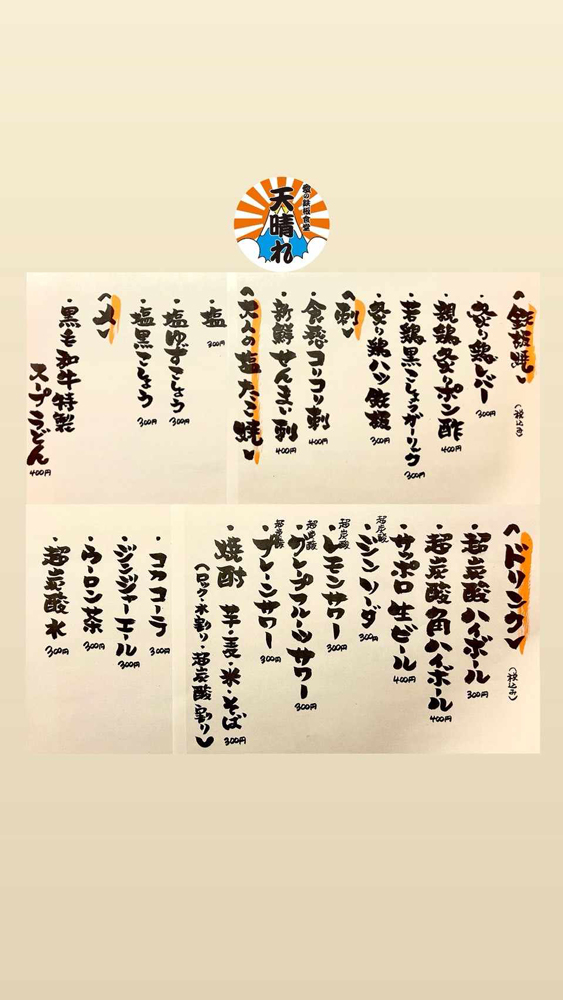 食の鉄板食堂
天晴れ
〈鉄板焼〉
(税込み)
・炙り鶏レバー 300円
・親鶏炙りポン酢 400円
・若鶏黒こしょうガーリック 300円
・炙り鶏ハツ鉄板 300円
〈刺〉
・食感コリコリ刺 400円
・新鮮せんまい刺 400円
〈大人の塩たこ焼〉
・塩 300円
・塩ゆずこしょう 300円
・塩黒こしょう 300円
〈〆〉
・黒毛和牛特製
スープうどん 400円
〈ドリンク〉
(税込み)
・超炭酸ハイボール 300円
・超炭酸角ハイボール 400円
・サッポロ生ビール 400円
・超炭酸ジンソーダ 300円
・超炭酸レモンサワー 300円
・超炭酸グレープフルーツサワー 300円
・超炭酸プレーンサワー 300円
・焼酎 芋・麦・米・そば 300円
〈ロック・水割り・超炭酸割り〉
・コカコーラ 300円
・ジンジャーエール 300円
・ウーロン茶 300円
・超炭酸水 300円